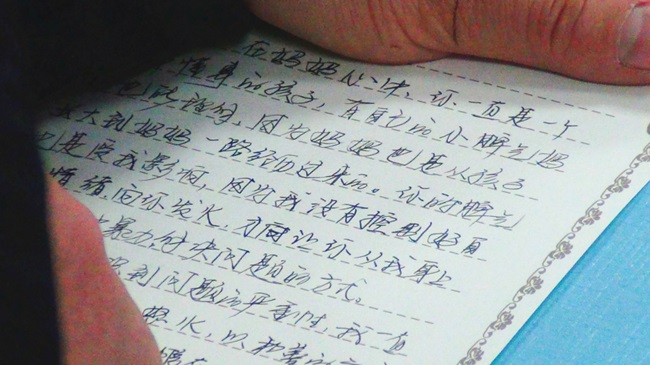 在妈妈心中,你一直是一个
懂事的孩子,有自己的小脾气妈
也能理解,因为妈妈也是从孩子
长大到妈妈一路经历过来的。你的脾气
也是受我影响,因为我没有控制好自
情绪,向你发火,才会让你从我身上
暴力解决问题的方式。
到问题的严重性,我一直
火,以